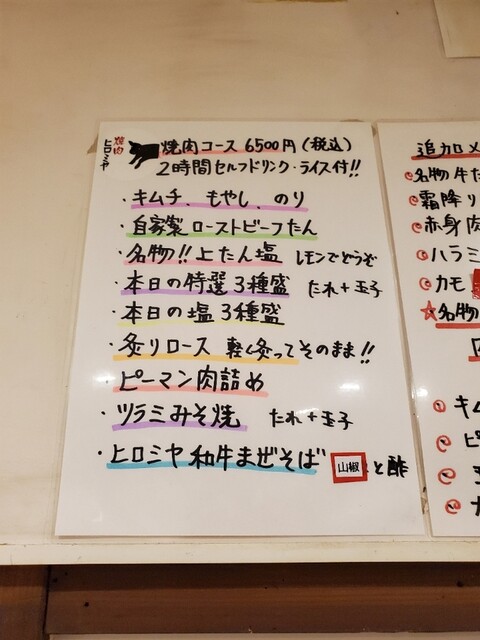 焼肉
ヒロミヤ
焼肉コース 6500円(税込)
2時間セルフドリンク・ライス付!!
・キムチ、もやし、のり
・自家製ローストビーフたん
・名物!!上たん塩 レモンでどうぞ
・本日の特選3種盛 たれ+玉子
・本日の塩3種盛
・炙りロース 軽く炙ってそのまま!!
・ピーマン肉詰め
・ツラミみそ焼 たれ+玉子
・ヒロミヤ和牛まぜそば 山椒と酢
追加メ
名物牛た
霜降り
赤身肉
ハラミ
カモ
★名物
キム
ピ